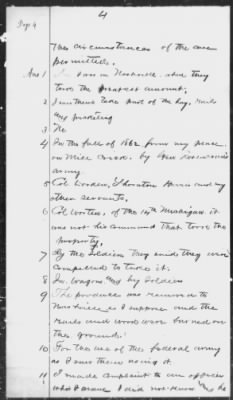 4
Dep 4
The circumstances of the case
permitted.
Ans 1 I was in Nashville when they
took the greatest amount.
2 I was there part of the day, rails
and
3 No
4 In the fall of 1862 from my place
on Mill Creek by Gen Rosecrans's
army
5 Col Worden, Thornton Harris and my
other servants.
6 Col of the 14th Michigan it
was not his command that took the
property.
7 By the Soldiers they said they were
compelled to take it.
8 In wagons and by Soldiers
9 The produce was removed to
Nashville as I suppose and the
rails and wood were burned on
the grounds.
10 For the use of the federal army
as I saw them using it.
11 I made complaint to an officer
whose name I did not know he